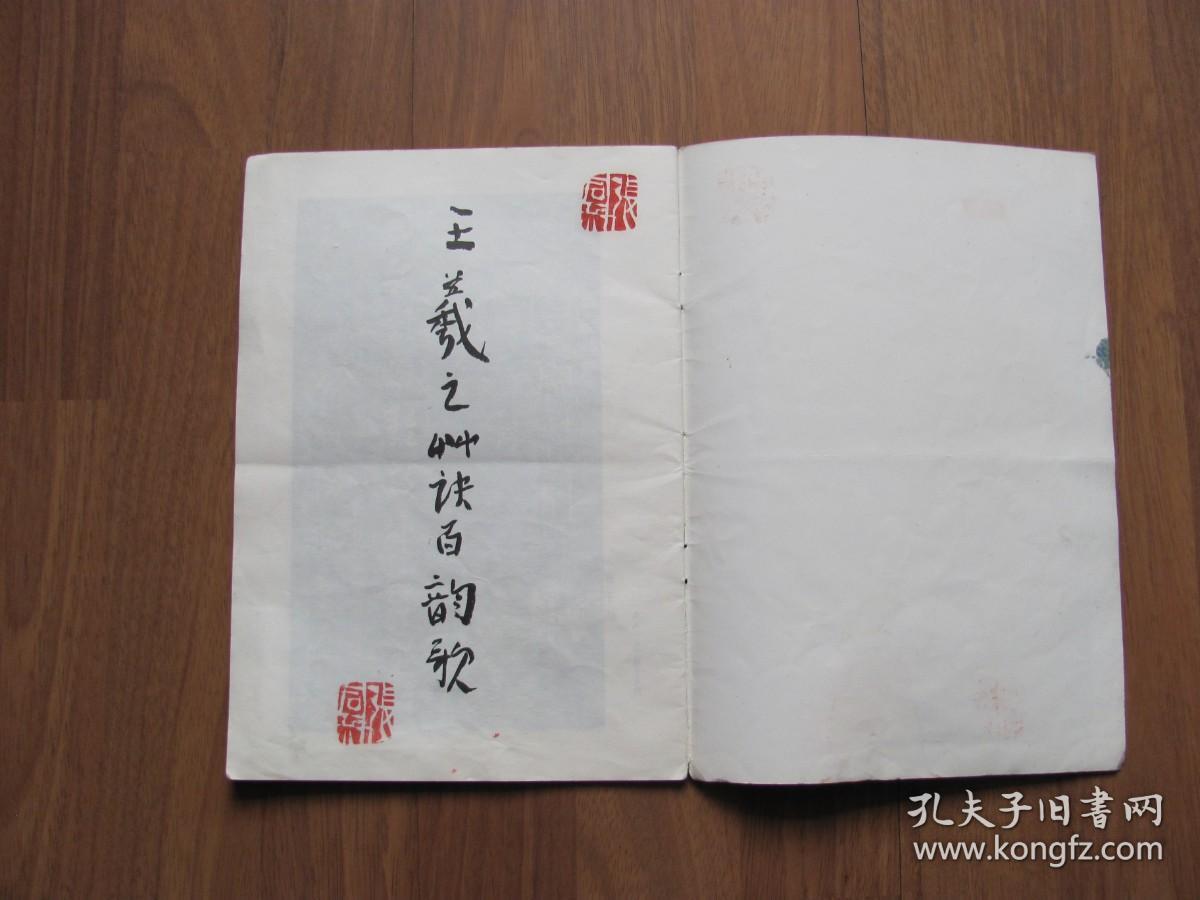 王羲之艸诀百韵歌
孔夫子旧书网
www.kongfz.com